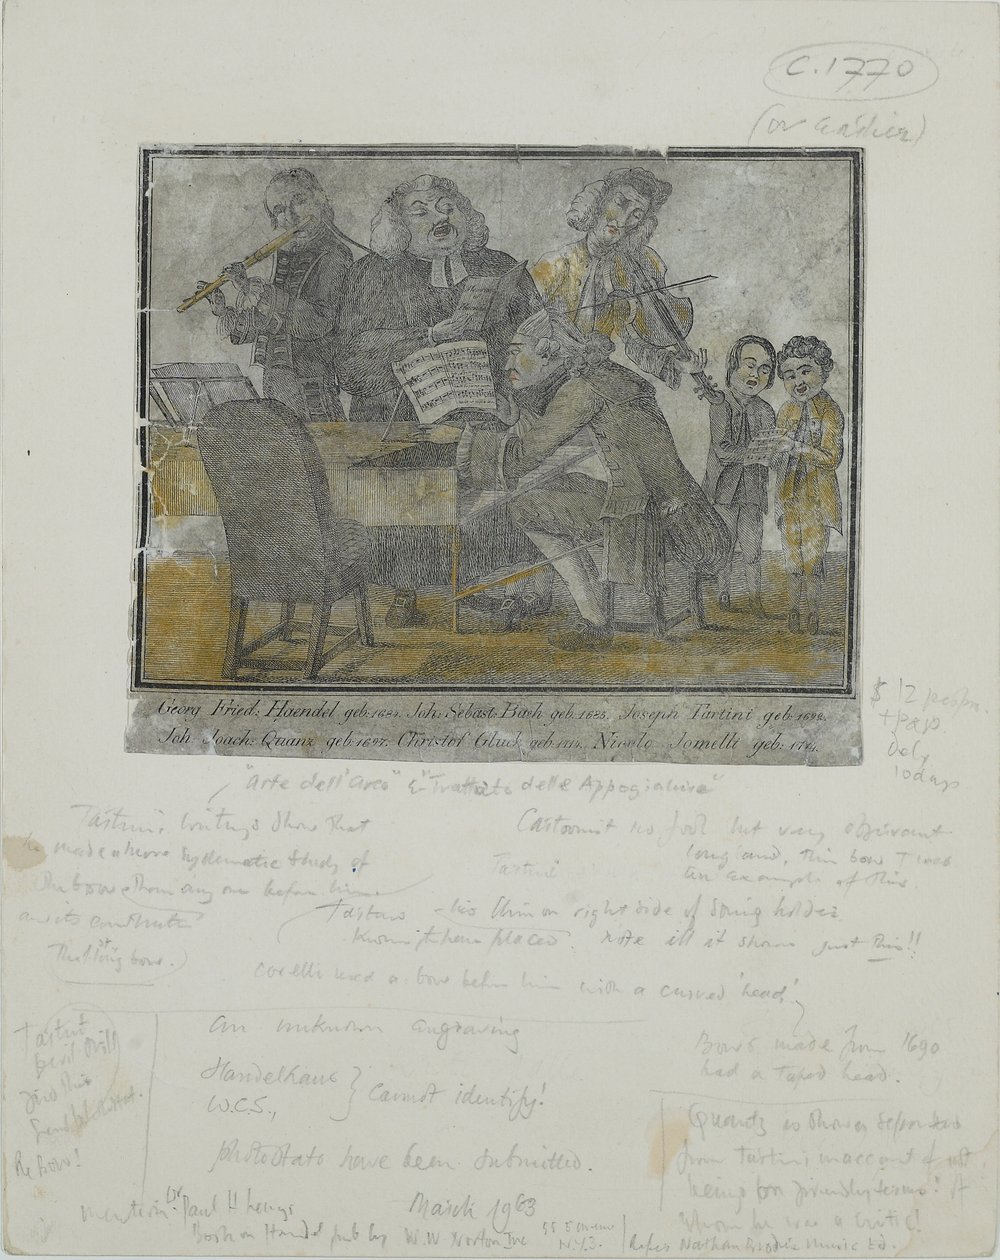 C. 1770
(or earlier)
Georg Fried: Haendel geb: 1684. Joh: Sebast: Bach geb: 1685. Joseph Tartini geb: 1692.
Joh Joach: Quanz geb: 1697. Christof Gluck geb: 1714. Nicolo Jomelli geb: 1714.
$ 12
10 days
"Arte dell'Arco" & "Trattato delle Appogiature"
Tartini's writings show that
he made a more systematic study of
the bow than any one before him
and its
bow.)
Cartoonist no fool but very observant
long and, thin bow T was
an example of this.
Tartini
Tartini - his chin on right side of string holder
Known to have placed. Note ill it shows just this!!
Corelli used a bow before him with a curved 'head'
Tartini
Devil
Re Bow!
An unknown engraving
Handelhaus
W.C.S., } Cannot identify!
Photostats have been submitted.
March 1963
Bows made from 1690
had a taped head.
Quantz is shown separated
from Tartini on account of not
being on friendly terms!
whom he was a critic!
mention Dr Paul H
Book on Handel pub by W. W. Norton Inc 55 5
N.Y.3.
Nathan Music